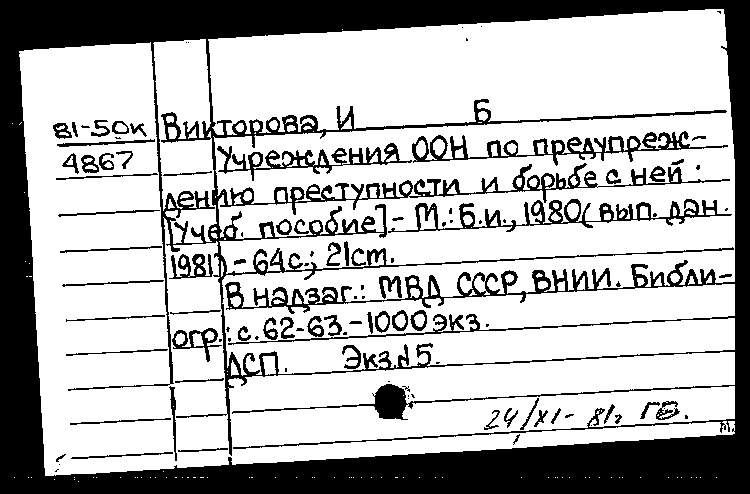 81-50к Викторова, И Б
4867 Учреждения ООН по предупреж-
дению преступности и борьбе с ней :
[Учеб. пособие].- М.: Б.и., 1980( вып. дан.
1981).- 64с.; 21см.
В надзаг.: МВД СССР, ВНИИ. Библи-
огр.: с. 62-63.-1000 экз.
ДСП. Экз.№5.
24/XI- 81г ГБ.
М.